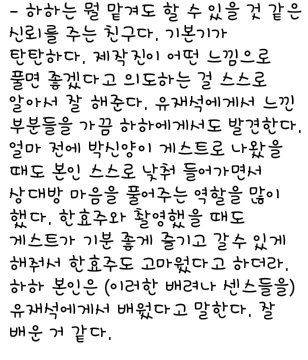 - 하하는 뭘 맡겨도 할 수 있을 것 같은
신뢰를 주는 친구다. 기본기가
탄탄하다. 제작진이 어떤 느낌으로
풀면 좋겠다고 의도하는 걸 스스로
알아서 잘 해준다. 유재석에게서 느낀
부분들을 가끔 하하에게서도 발견한다.
얼마 전에 박신양이 게스트로 나왔을
때도 본인 스스로 낮춰 들어가면서
상대방 마음을 풀어주는 역할을 많이
했다. 한효주와 촬영했을 때도
게스트가 기분 좋게 즐기고 갈수 있게
해줘서 한효주도 고마웠다고 하더라.
하하 본인은 (이러한 배려나 센스들을)
유재석에게서 배웠다고 말한다. 잘
배운 거 같다.